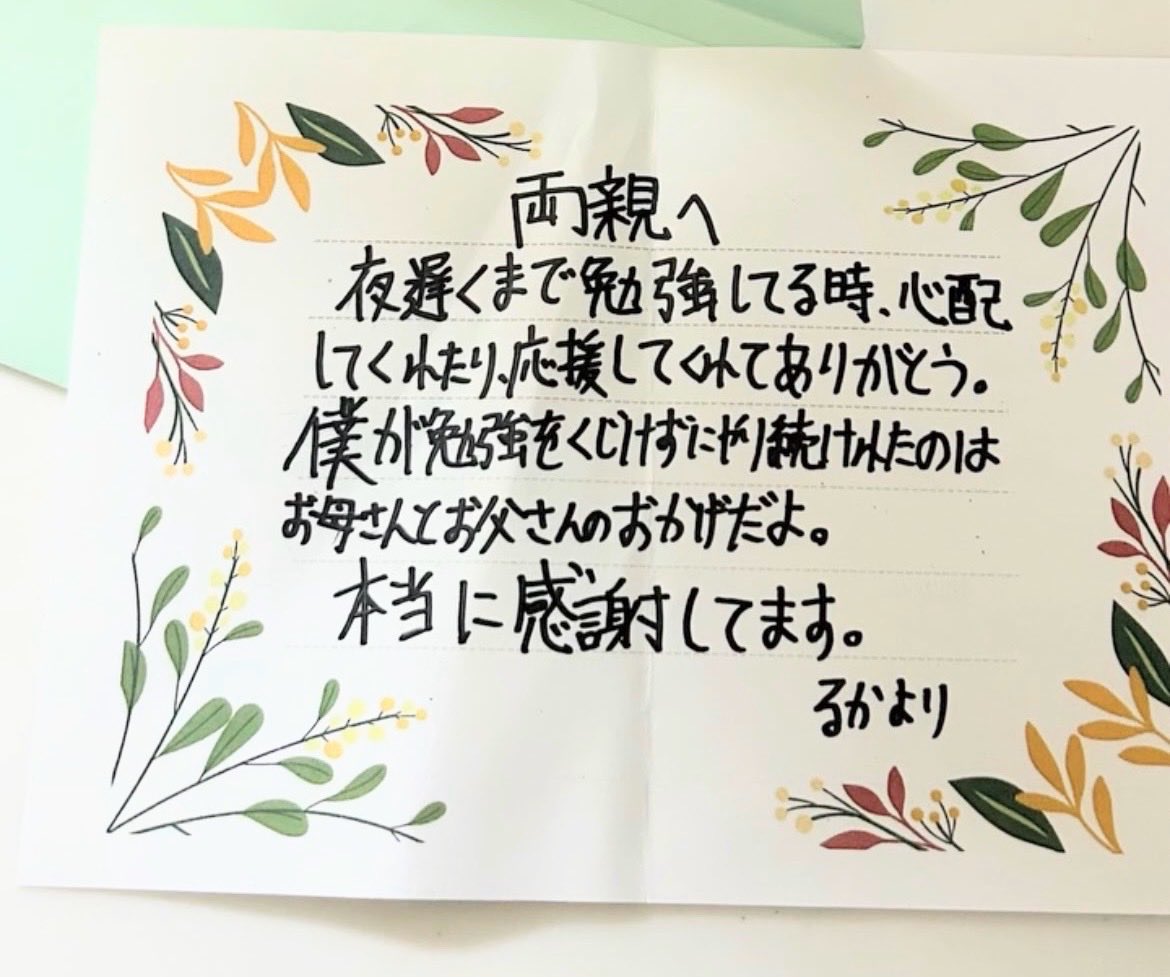 両親へ
夜遅くまで勉強してる時、心配
してくれたり、応援してくれてありがとう。
僕が勉強をくじけずにやり続けれたのは
お母さんとお父さんのおかげだよ。
本当に感謝してます。
るかより